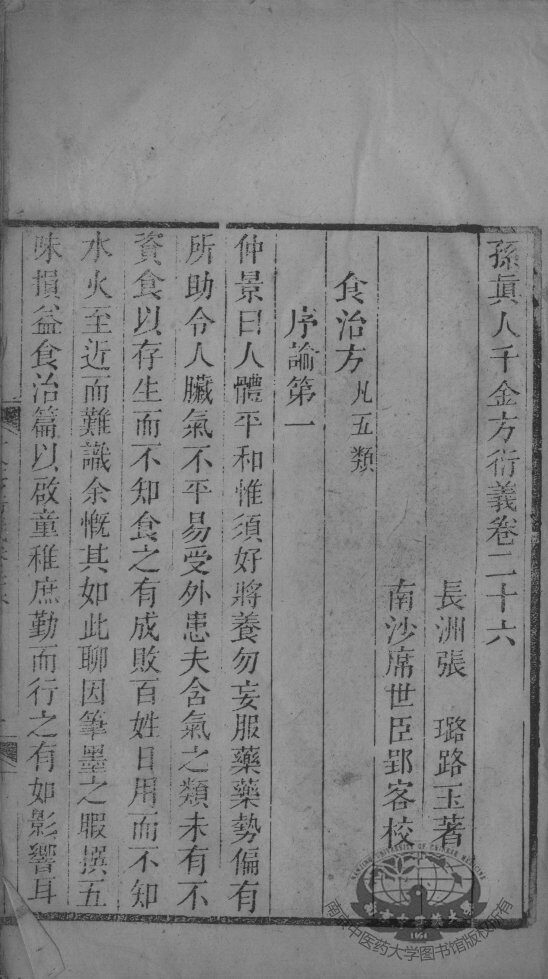 孫眞人千金方衍義卷二十六
長洲張　璐路玉著
南沙席世臣郢客校
食治方凡五類
序論第一
仲景曰人體平和惟須好將養勿妄服藥藥勢偏有
所助令人臟氣不平易受外患夫含氣之類未有不
資食以存生而不知食之有成敗百姓日用而不知
水火至近而難識余慨其如此聊因筆墨之暇撰五
味損益食治篇以啟童稚庶勤而行之有如影響耳
南京中医药大学图书馆版权所有
NANJING UNIVERSITY OF CHINESE MEDICINE
南京中医药大学
1954